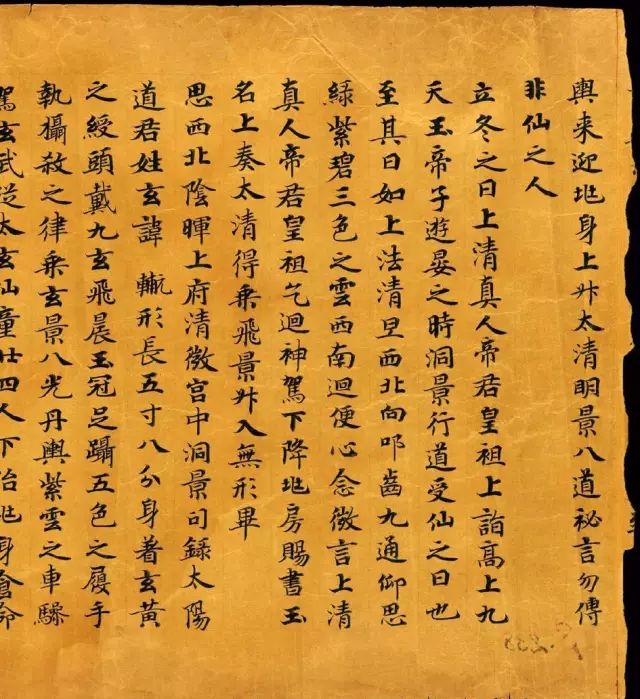 輿来迎垗身上升太清明景八道祕言勿傳
非仙之人
立冬之日上清真人帝君皇祖上詣高上九
天玉帝子遊晏之時洞景行道受仙之日也
至其日如上法清旦西北向叩齒九通仰思
緑紫碧三色之雲西南迴便心念微言上清
真人帝君皇祖乞迴神駕下降垗房賜書玉
名上奏太清得乘飛景升入無形畢
思西北陰暉上府清微宮中洞景司録太陽
道君姓玄諱 形長五寸八分身著玄黄
之綬頭戴九玄飛晨玉冠足躡五色之履手
執攝殺之律乘玄景八光丹輿紫雲之車驂
駕玄武從太玄仙童廿四人下治垗身命